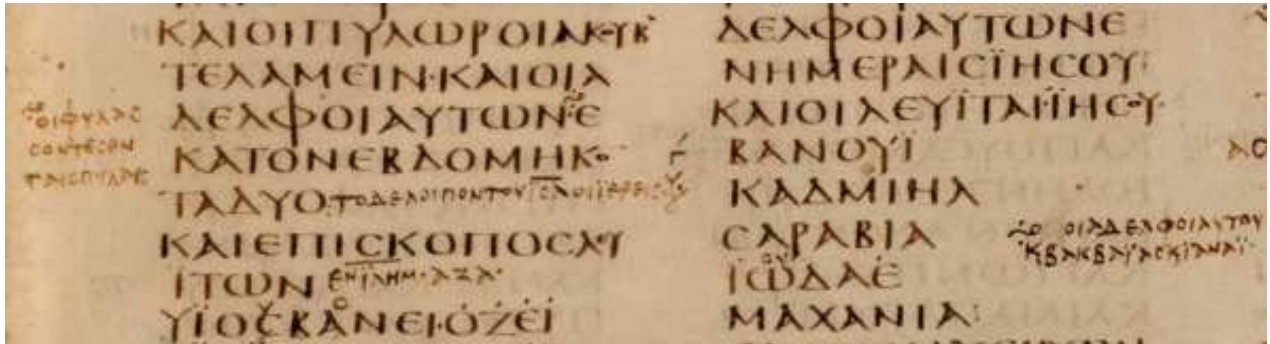 ΚΑΙΟΙΠΥΛΩΡΟΙΑΚΟΥΒ
ΤΕΛΑΜΕΙΝ·ΚΑΙΟΙΑ
ΔΕΛΦΟΙΑΥΤΩΝ·Ε
ΚΑΤΟΝΕΒΔΟΜΗΚΟ
ΤΑΔΥΟ
ΚΑΙΕΠΙΣΚΟΠΟΣΛΥ
ΪΤΩΝ ΕΝΪΛΗΜ·ΑΖΑ·
ΥΪΟΣΒΑΝΕΙ·ΟΖΕΪ
ΟΙΦΥΛΑΣ
ΣΟΝΤΕΣΕΝ
ΤΑΙΣΠΥΛΑΙΣ
ΔΕΛΦΟΙΑΥΤΩΝΕ
ΝΗΜΕΡΑΙΣΪΗΣΟΥ
ΚΑΙΟΙΛΕΥΪΤΑΙ·ΪΗΣΟΥ·
ΒΑΝΟΥΪ
ΚΑΔΜΙΗΛ
ΣΑΡΑΒΙΑ
ΪΩΔΑΕ
ΜΑΧΑΝΙΑ
ΟΙΑΔΕΛΦΟΙΑΥΤΟΥ